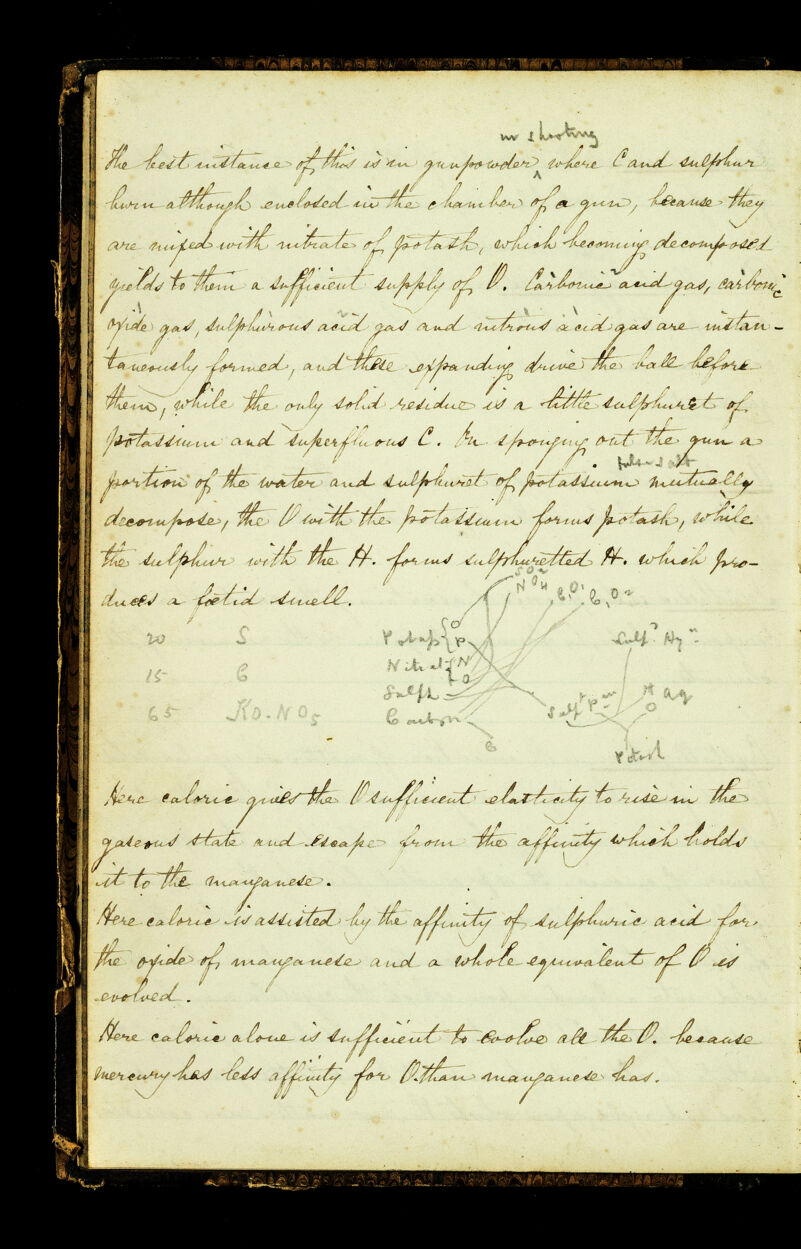 in shooting
The best instance of this is in gunpowder ^ where C and sulphur
burn although enclosed in the chamber of a gun, because they
are mixed with nitrate of potash, which becoming decomposed
yields to them a sufficient supply of O. Carbonic acid gas, carbonic
oxide gas, sulphurous acid gas and nitrous acid gas are instan-
taneously formed, and these expanding drive the ball before
them, while the only solid residue is a little sulphuret of
potassium and superfluous C. On sponging out the gun a
portion of the water and sulphuret of potassium mutually
decompose, the O with the potassium forms potash, while
the sulphur with the H. forms sulphuretted H. which pro-
duces a fœtid smell.
SO2
NO4 C,O' C,O2
20 S Potass { O P Sulp. Hy.
Nitrat { N O
15 C Sulph Sulp P H O Aq
65 KO.NO5 Carbon
C Potash
Here caloric gives the O sufficient elasticity to rise in the
gaseous state and escape from the affinity which holds
it to the manganese.
Here caloric is assisted by the affinity of sulphuric acid for
the oxide of manganese and a whole equivalent of O is
evolved.
Here caloric alone is sufficient to evolve all the O. because
mercury has less affinity for O. than manganese has.